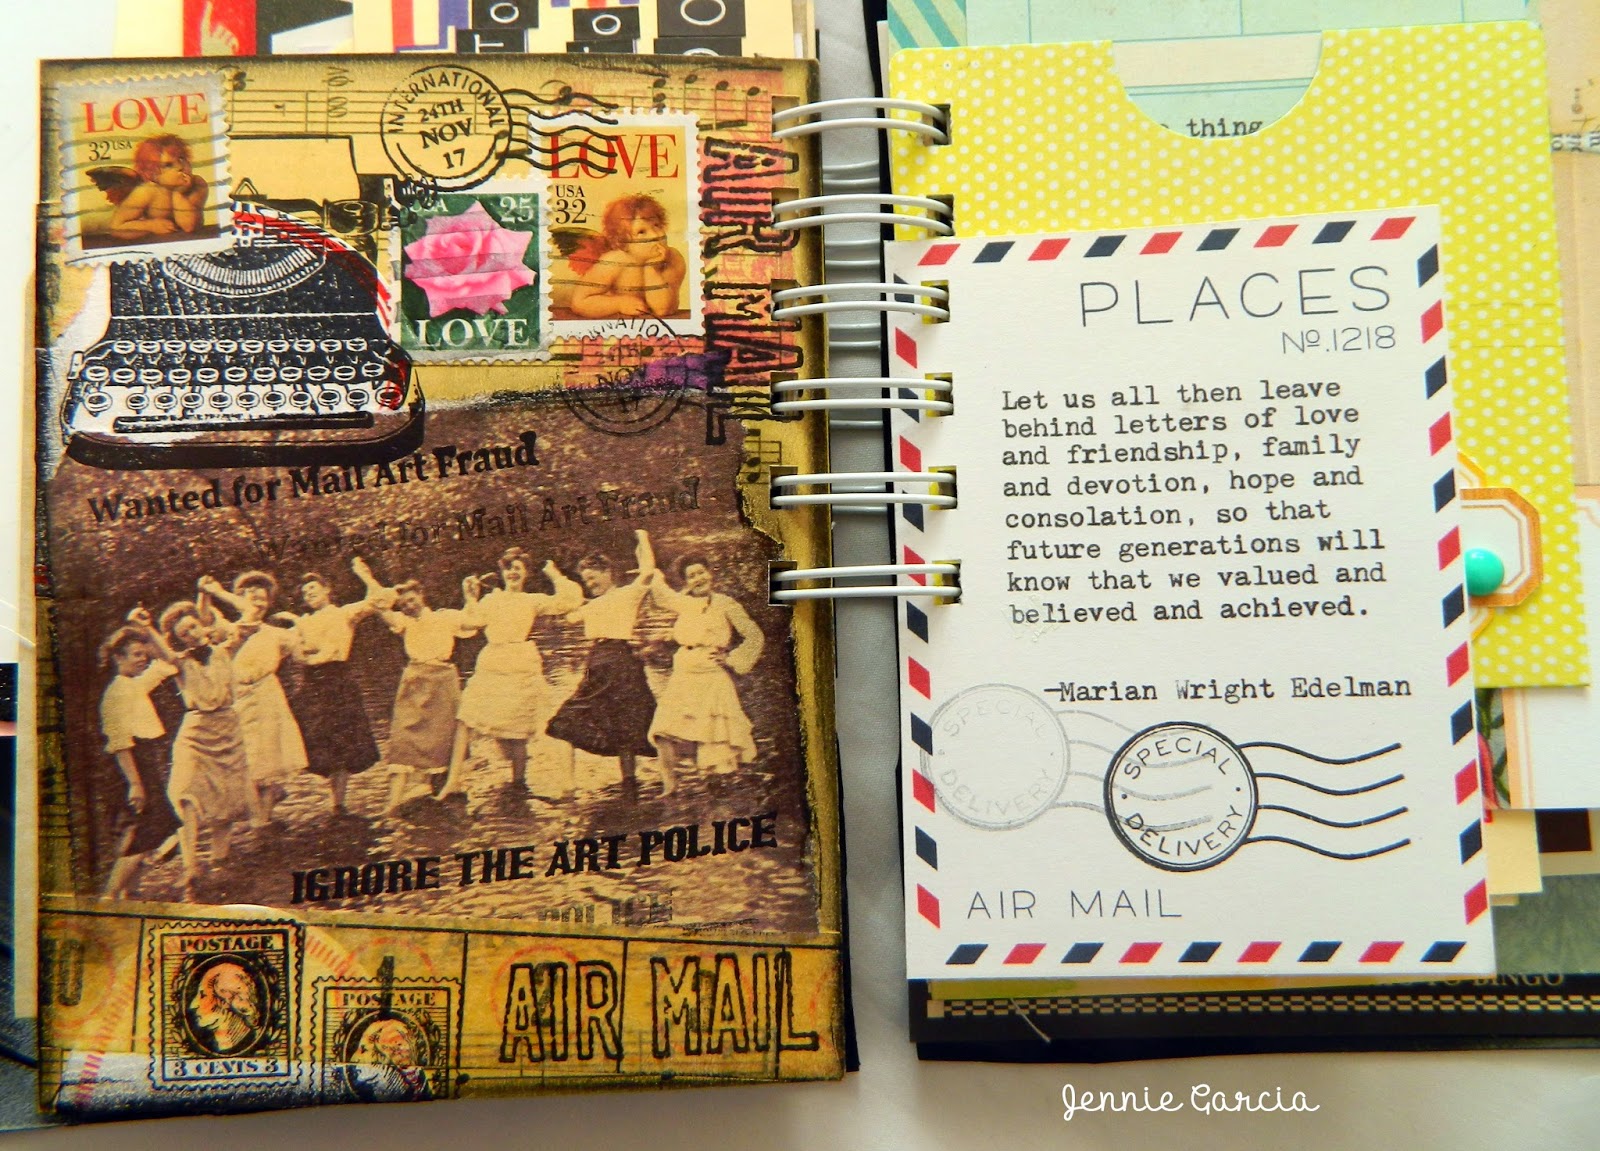 LOVE
32 USA
INTERNATIONAL
24TH
NOV
17
LOVE
USA
32
USA 25
LOVE
AIR MAIL
NOV
17
Wanted for Mail Art Fraud
Wanted for Mail Art Fraud
IGNORE THE ART POLICE
POSTAGE
3 CENTS 3
POSTAGE
AIR MAIL
thing
PLACES
No.1218
Let us all then leave
behind letters of love
and friendship, family
and devotion, hope and
consolation, so that
future generations will
know that we valued and
believed and achieved.
—Marian Wright Edelman
SPECIAL
DELIVERY
SPECIAL
DELIVERY
AIR MAIL
Jennie Garcia